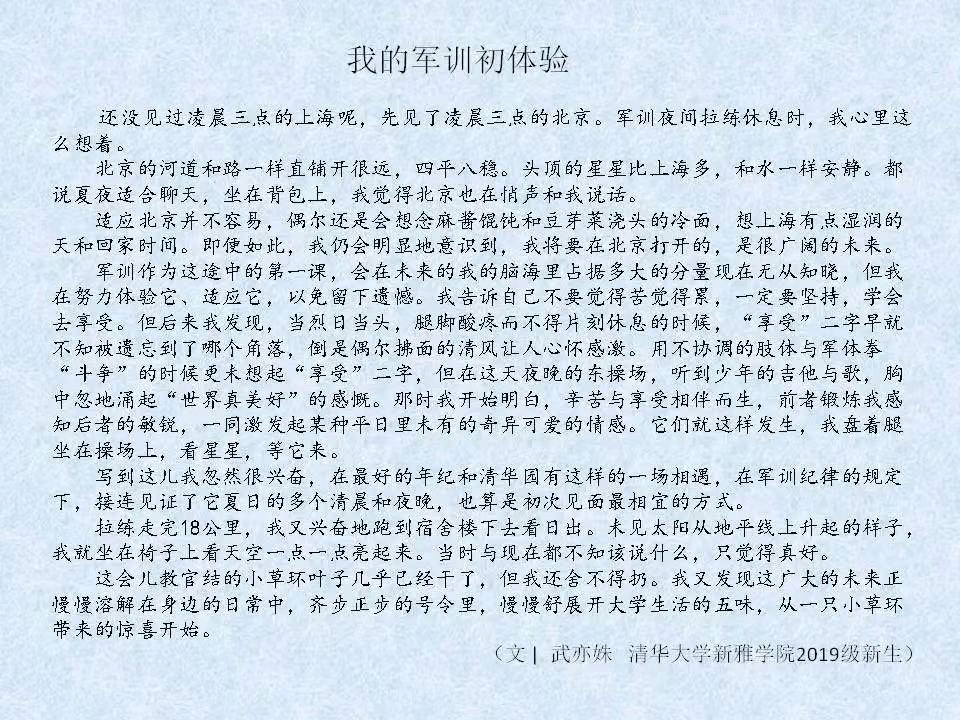 我的军训初体验
还没见过凌晨三点的上海呢，先见了凌晨三点的北京。军训夜间拉练休息时，我心里这
么想着。
北京的河道和路一样直铺开很远，四平八稳。头顶的星星比上海多，和水一样安静。都
说夏夜适合聊天，坐在背包上，我觉得北京也在悄声和我说话。
适应北京并不容易，偶尔还是会想念麻酱馄饨和豆芽菜浇头的冷面，想上海有点湿润的
天和回家时间。即便如此，我仍会明显地意识到，我将要在北京打开的，是很广阔的未来。
军训作为这途中的第一课，会在未来的我的脑海里占据多大的分量现在无从知晓，但我
在努力体验它、适应它，以免留下遗憾。我告诉自己不要觉得苦觉得累，一定要坚持，学会
去享受。但后来我发现，当烈日当头，腿脚酸疼而不得片刻休息的时候，“享受”二字早就
不知被遗忘到了哪个角落，倒是偶尔拂面的清风让人心怀感激。用不协调的肢体与军体拳
“斗争”的时候更未想起“享受”二字，但在这天夜晚的东操场，听到少年的吉他与歌，胸
中忽地涌起“世界真美好”的感慨。那时我开始明白，辛苦与享受相伴而生，前者锻炼我感
知后者的敏锐，一同激发起某种平日里未有的奇异可爱的情感。它们就这样发生，我盘着腿
坐在操场上，看星星，等它来。
写到这儿我忽然很兴奋，在最好的年纪和清华园有这样的一场相遇，在军训纪律的规定
下，接连见证了它夏日的多个清晨和夜晚，也算是初次见面最相宜的方式。
拉练走完18公里，我又兴奋地跑到宿舍楼下去看日出。未见太阳从地平线上升起的样子，
我就坐在椅子上看天空一点一点亮起来。当时与现在都不知该说什么，只觉得真好。
这会儿教官结的小草环叶子几乎已经干了，但我还舍不得扔。我又发现这广大的未来正
慢慢溶解在身边的日常中，齐步正步的号令里，慢慢舒展开大学生活的五味，从一只小草环
带来的惊喜开始。
（文 | 武亦姝 清华大学新雅学院2019级新生）